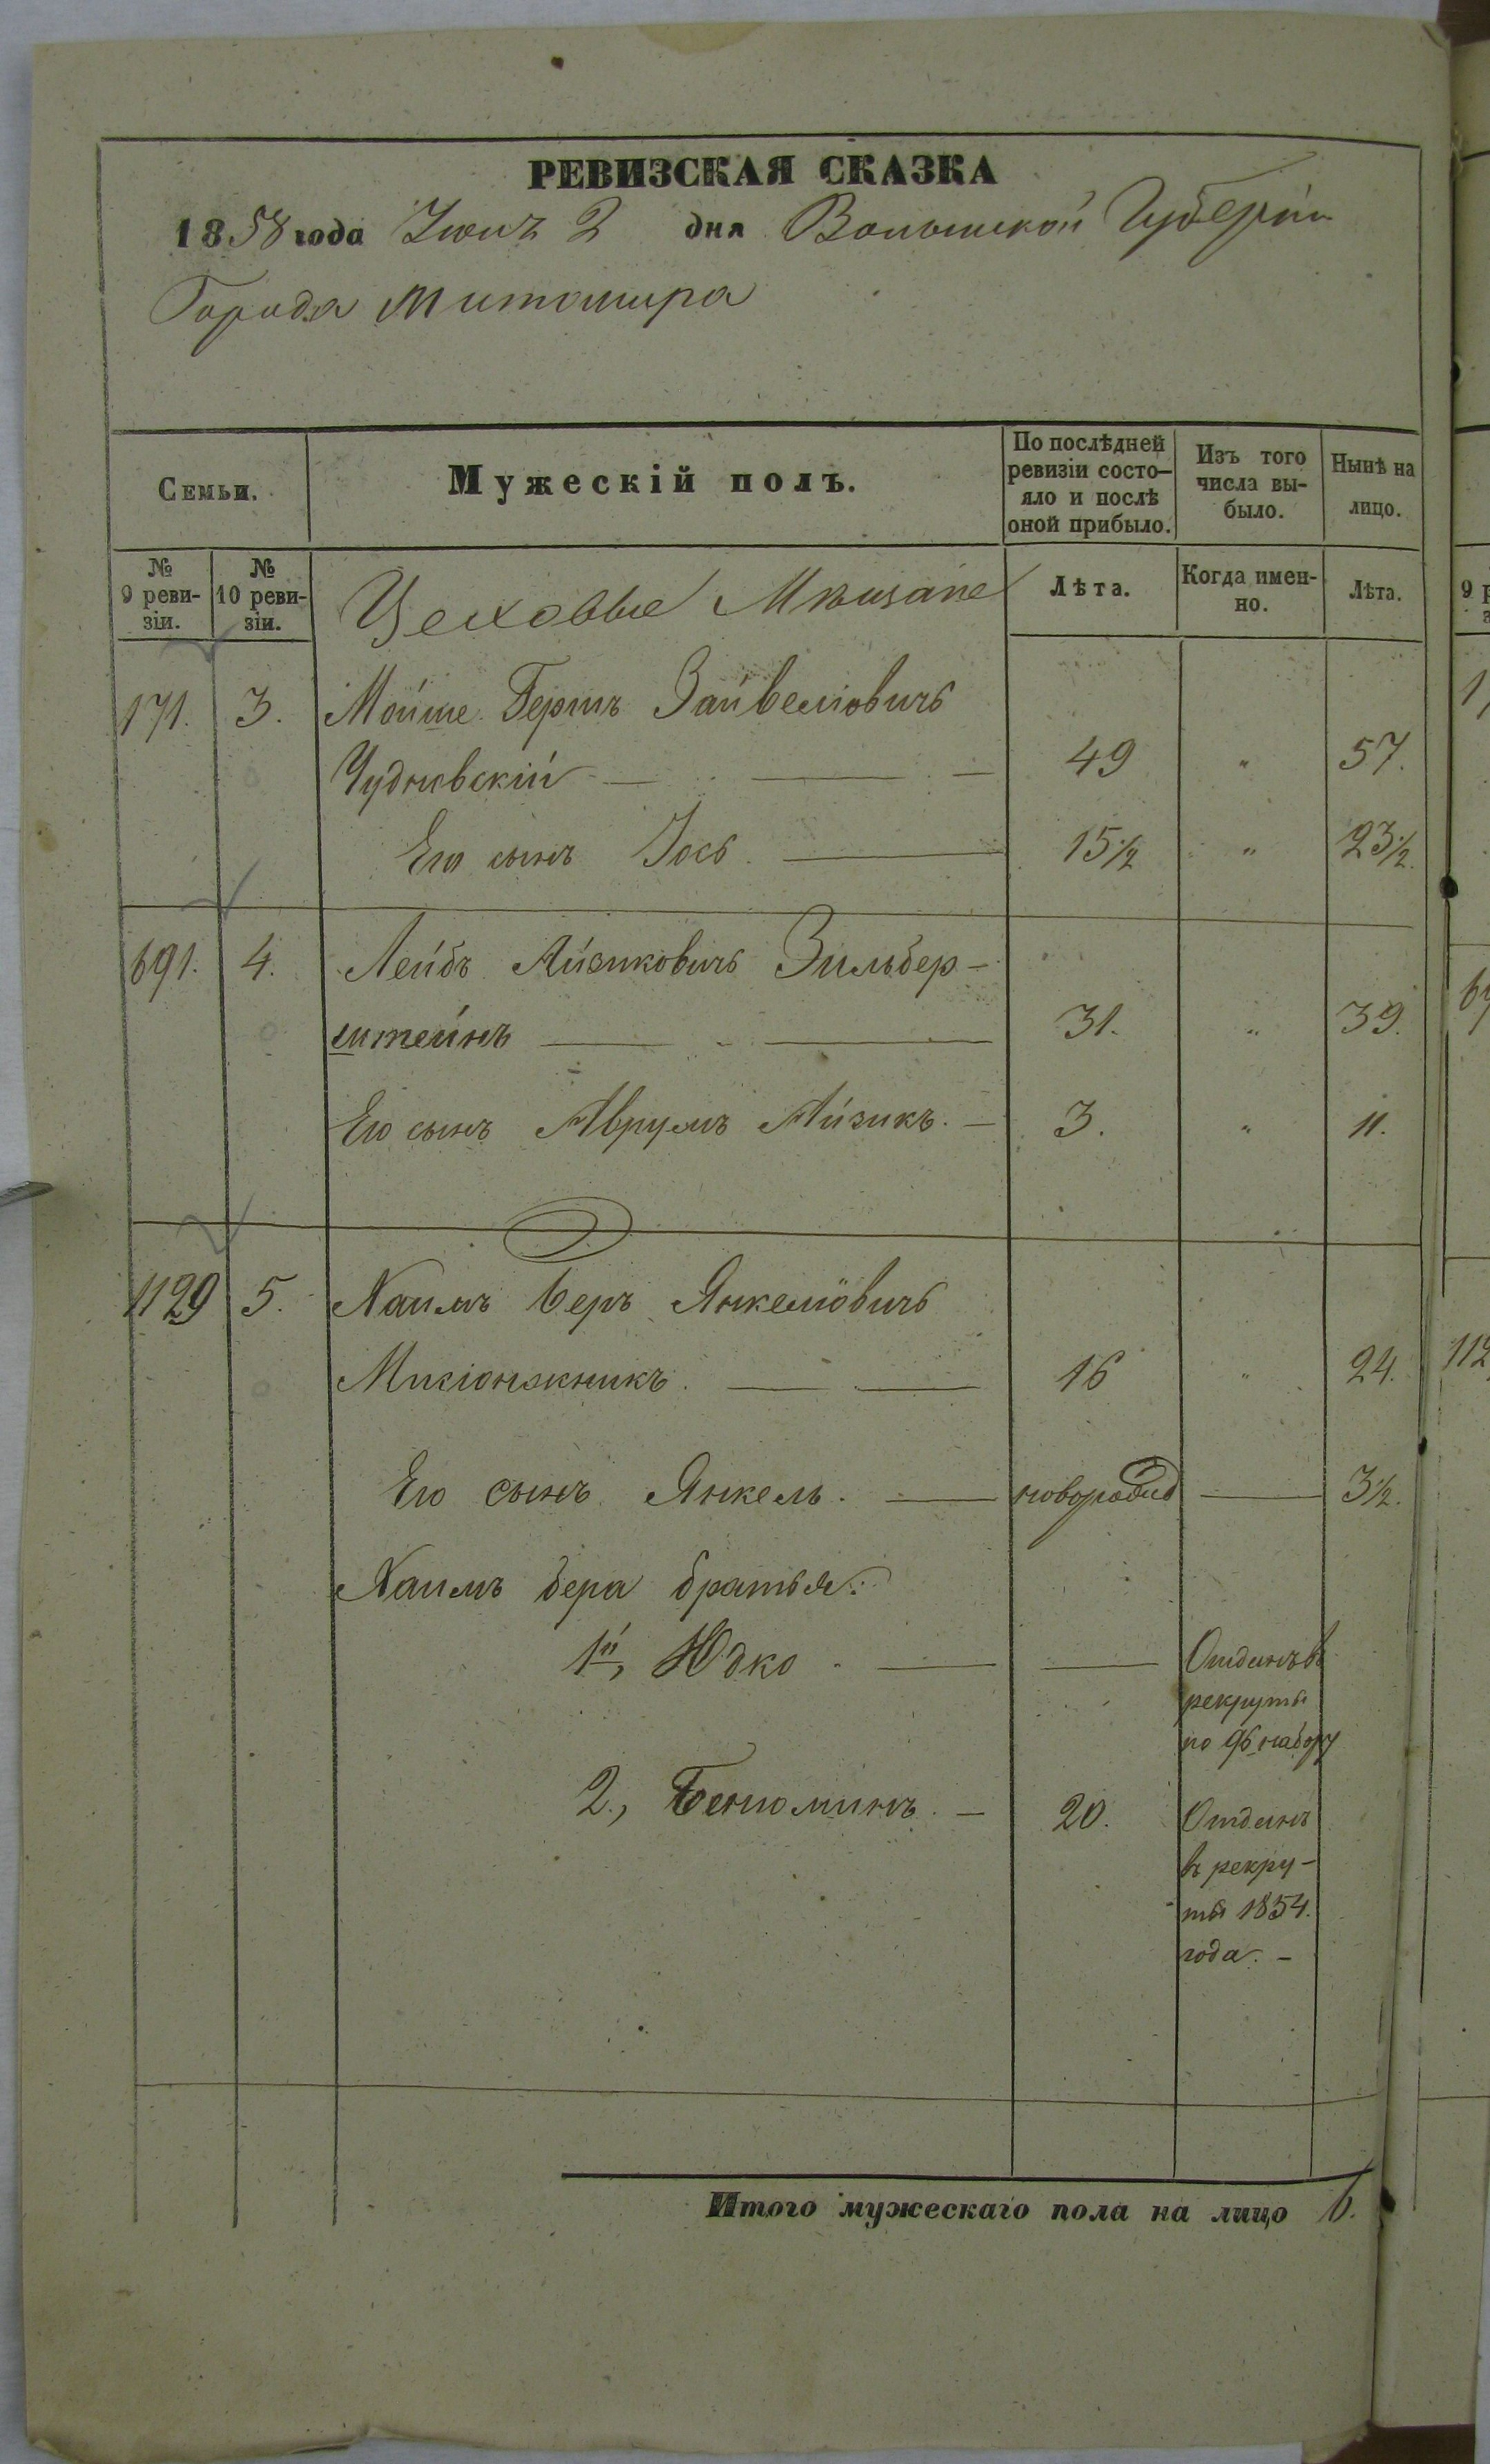 РЕВИЗСКАЯ СКАЗКА
1858 года Июнь 2 дня Волынской Губерніи
Города Житомира
Семьи.
Мужескій полъ.
По послѣдней
ревизіи состо-
яло и послѣ
оной прибыло.
Изъ того
числа вы-
было.
Нынѣ на
лицо.
№
9 реви-
зіи.
№
10 реви-
зіи.
Цеховые Мѣщане
Лѣта.
Когда имен-
но.
Лѣта.
171. 3. Мойше Гершъ Зайвеліовичъ
Чудновскій — — — 49 " 57.
Его сынъ Іось. — 15½ " 23½.
691. 4. Лейбъ Айзиковичъ Зильбер-
штейнъ — — 31. " 39.
Его сынъ Аврумъ Айзикъ. — 3. " 11.
1129 5. Хаимъ Беръ Янкеліовичъ
. — — 16 " 24.
Его сынъ Янкель. — новорожд — 3½.
Хаимъ бера братья:
1й, Юдко. — — Отданъ въ
рекруты
по 96 набору
2., Бениоминъ. — 20. Отданъ
въ рекру-
ты 1854.
года. -
Итого мужескаго пола на лицо 6.